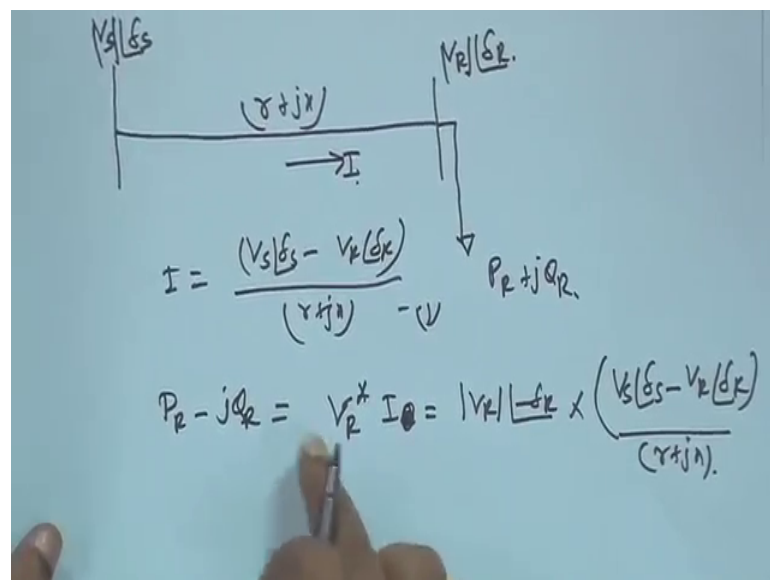 |Vs|∠δs
|VR|∠δR.
(r+jx)
→ I.
I = (Vs∠δs − VR∠δR) / (r+jx) —(1)
PR + jQR.
PR − jQR = VR* I = |VR|∠−δR × (Vs∠δs − VR∠δR) / (r+jx).